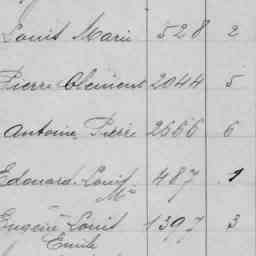 Louis Marie 528 2
Pierre Clément 2044 5
Antoine Pierre 2566 6
Edouard Louis 487 1
Mie
Eugène Louis 1397 3
Emile